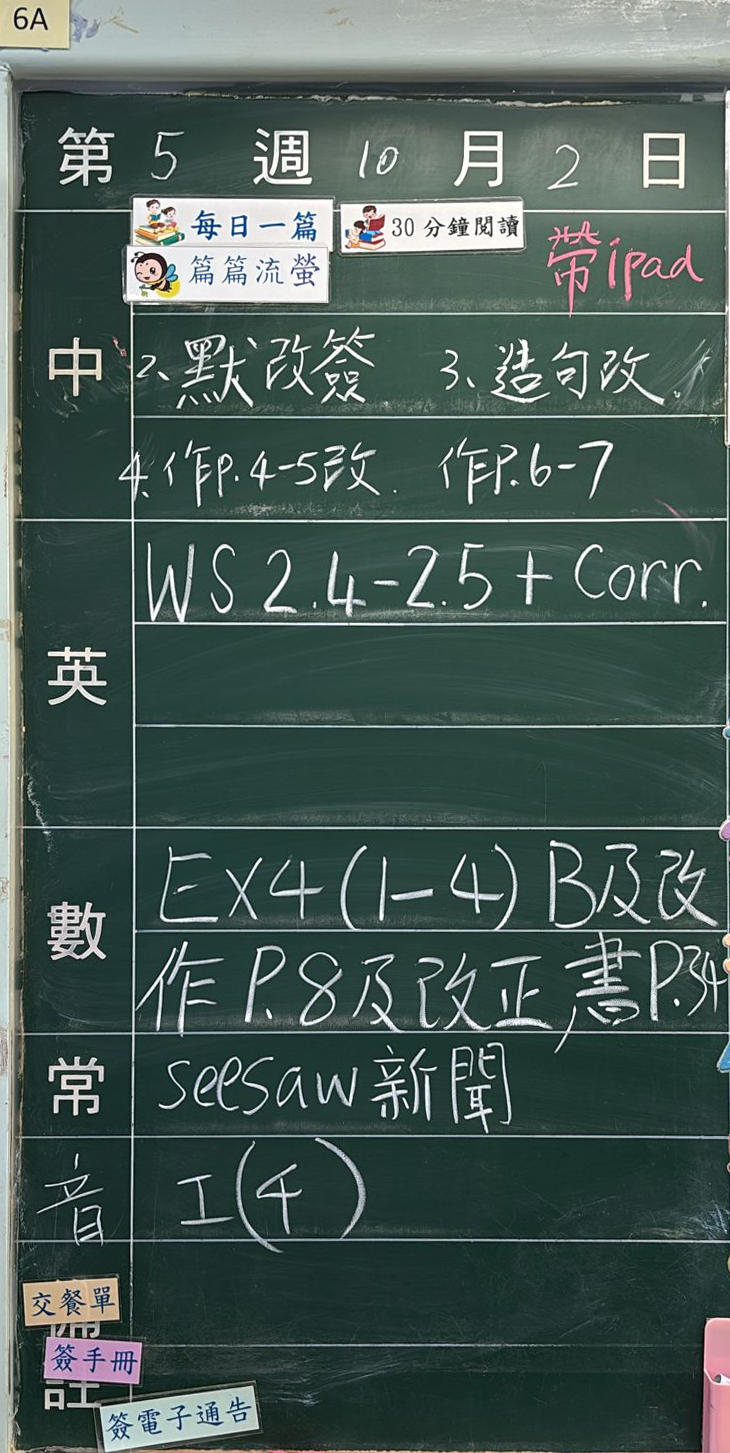 6A
第 5 週 10 月 2 日
每日一篇 30 分鐘閱讀
篇篇流螢
帶ipad
中
2、默改簽 3、造句改。
4.作P.4-5改. 作P.6-7
英
WS 2.4-2.5 + Corr.
數
Ex4(1-4) B及改
作 P.8及改正,書P.34
常
seesaw新聞
音
工(4)
交餐單
備註
簽手冊
簽電子通告